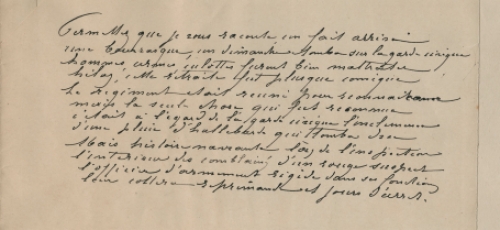 Permettez que je vous raconte un fait arrivé
une bourrasque, un dimanche tomba sur la garde civique
hommes, armes, culottes furent bien maltraités
hélas, cette retraite fut plus que comique
Le régiment était réuni pour reconnaitance
mais la seule chose qui fut reconnue
c'était à l'égard de la garde civique l'inclémence
d'une pluie d'hallebarde qui tomba drue
Mais histoire navrante lors de l'inspection
l'intérieur des canons d'un rouge suspect
l'officier d'armement rigide dans ses fonctions
colère réprimande et jours d'arrêt.